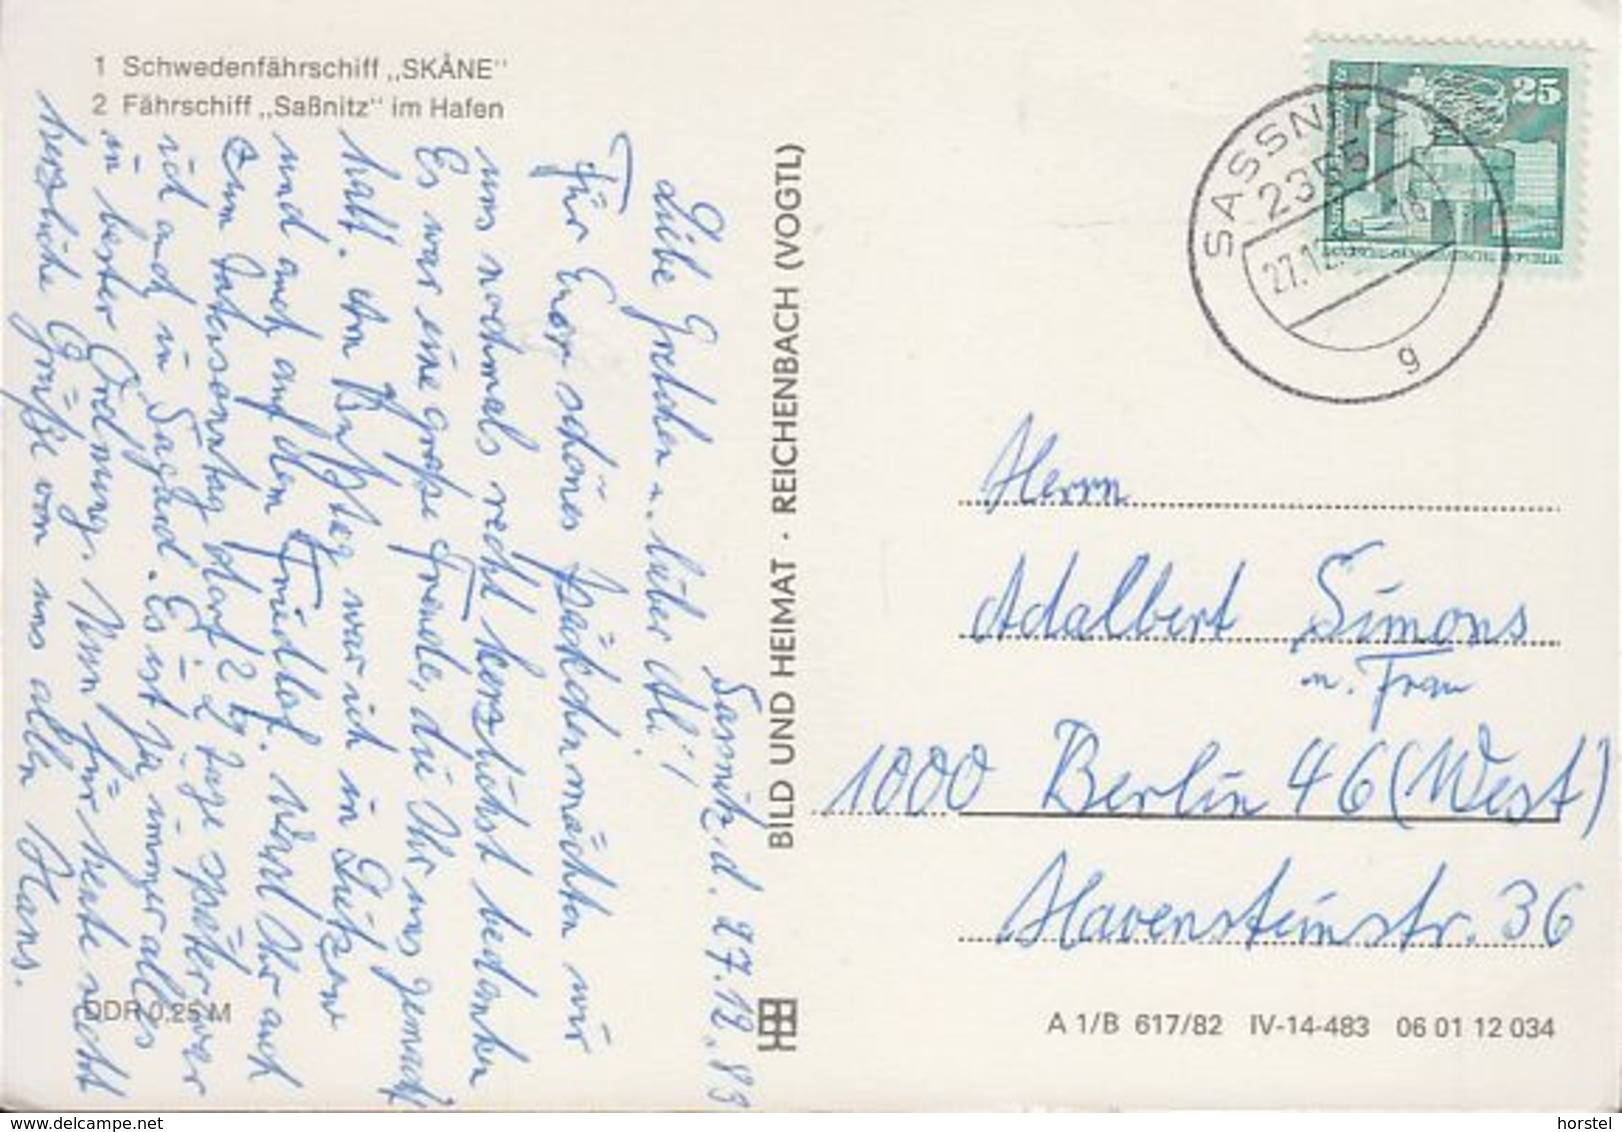 1 Schwedenfährschiff „SKÅNE"
2 Fährschiff „Saßnitz" im Hafen
Sassnitz, d. 27.12.83
Liebe Gretchen u. lieber Adi!
Für Euer schönes Päckchen möchten wir
uns nochmals recht herzlichst bedanken
Es war eine große Freude, die Ihr uns gemacht
habt. Am Bußtag war ich in
und auch auf dem Friedhof. Ward Ihr auch
zum Totensonntag dort? 2 Tage später war
ich auch in Sagard. Es ist ja immer alles
in bester Ordnung. Nun für heute recht
herzliche Grüße von uns allen Hans.
DDR 0,25 M
BILD UND HEIMAT · REICHENBACH (VOGTL)
SASSNITZ
2355
27.12.
18
g
25
Herrn
Adalbert Simons
u. Frau
1000 Berlin 46 (West)
Havensteinstr. 36
A 1/B 617/82 IV-14-483 06 01 12 034
horstel
www.delcampe.net